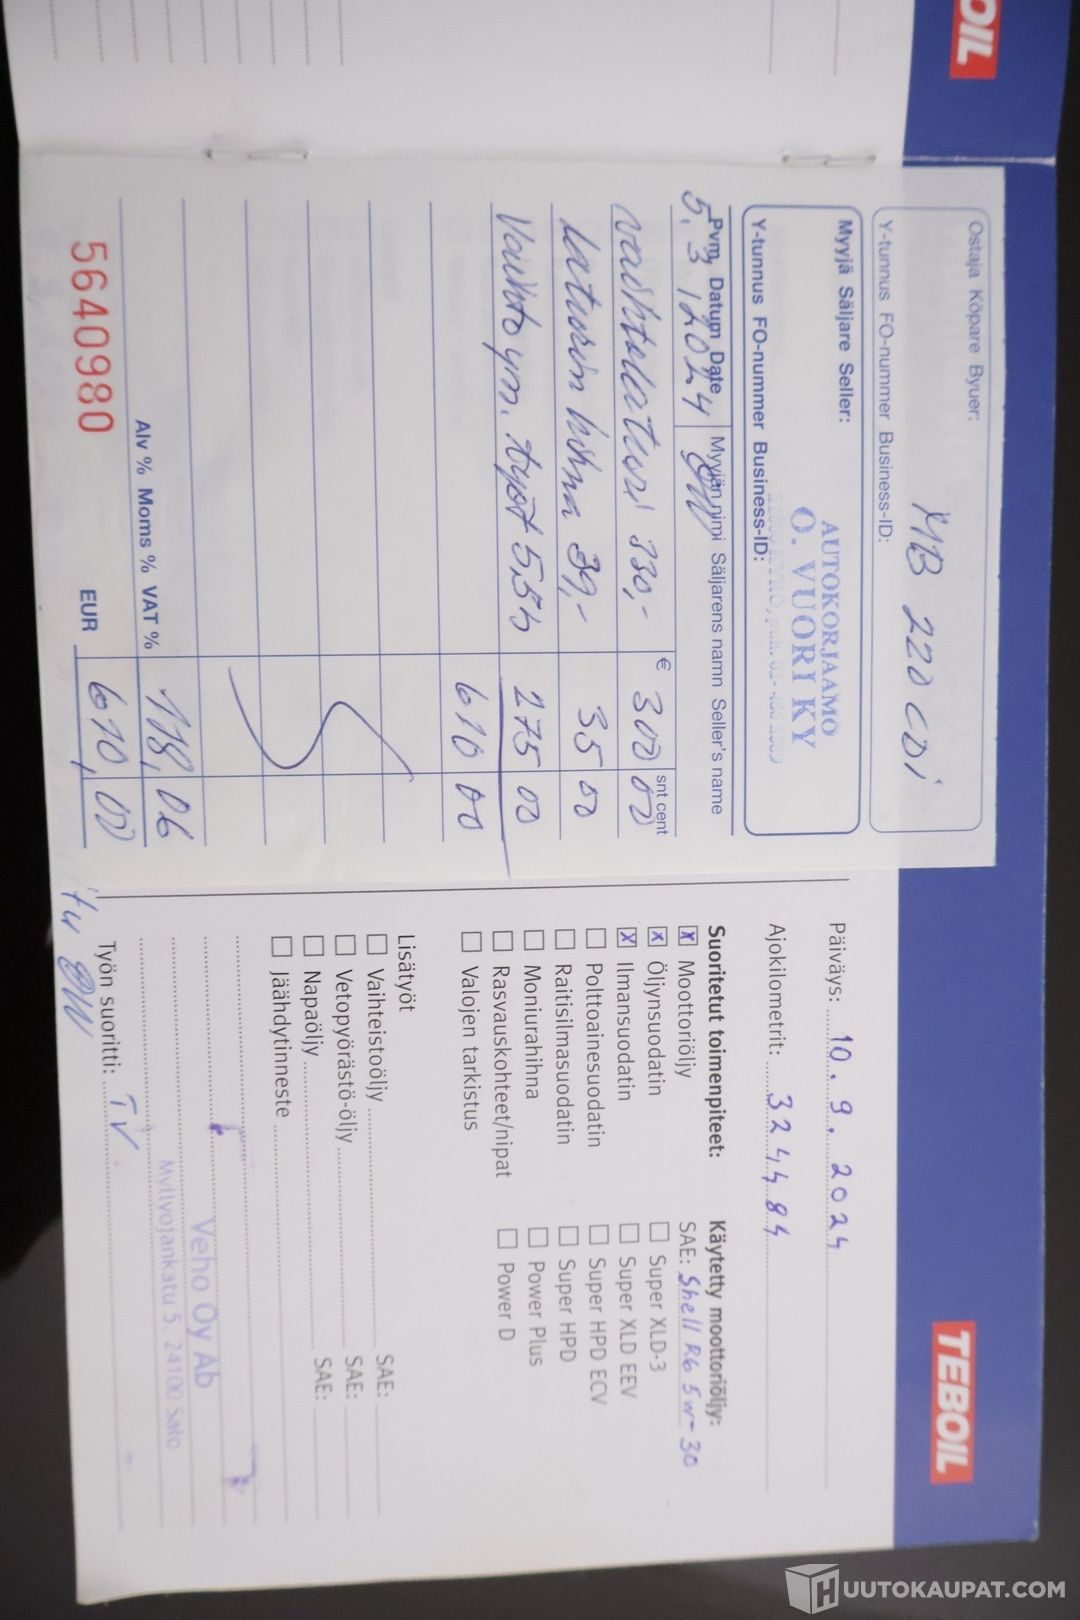 OIL
Ostaja Köpare Byuer:
MB 220 CDi
Y-tunnus FO-nummer Business-ID:
Myyjä Säljare Seller:
AUTOKORJAAMO
O. VUORI KY
Y-tunnus FO-nummer Business-ID:
Pvm. Datum Date
Myyjän nimi Säljarens namn Seller's name
5.3.2024
€ snt cent
vaihtolaturi 330,- 300 00
Laturin hihna 39,- 35 00
Vaihto ym. työt 5,5h 275 00
610 00
Alv % Moms % VAT % 118,06
5640980 EUR 610,00
TEBOIL
Päiväys: 10.9.2024
Ajokilometrit: 324484
Suoritetut toimenpiteet:
x Moottoriöljy
x Öljynsuodatin
x Ilmansuodatin
Polttoainesuodatin
Raitisilmasuodatin
Moniurahihna
Rasvauskohteet/nipat
Valojen tarkistus
Käytetty moottoriöljy:
SAE: Shell R6 5w-30
Super XLD-3
Super XLD EEV
Super HPD ECV
Super HPD
Power Plus
Power D
Lisätyöt
Vaihteistoöljy SAE:
Vetopyörästö-öljy SAE:
Napaöljy SAE:
Jäähdytinneste
Veho Oy Ab
Myllyojankatu 5, 24100 Salo
Työn suoritti: TV
HUUTOKAUPAT.COM